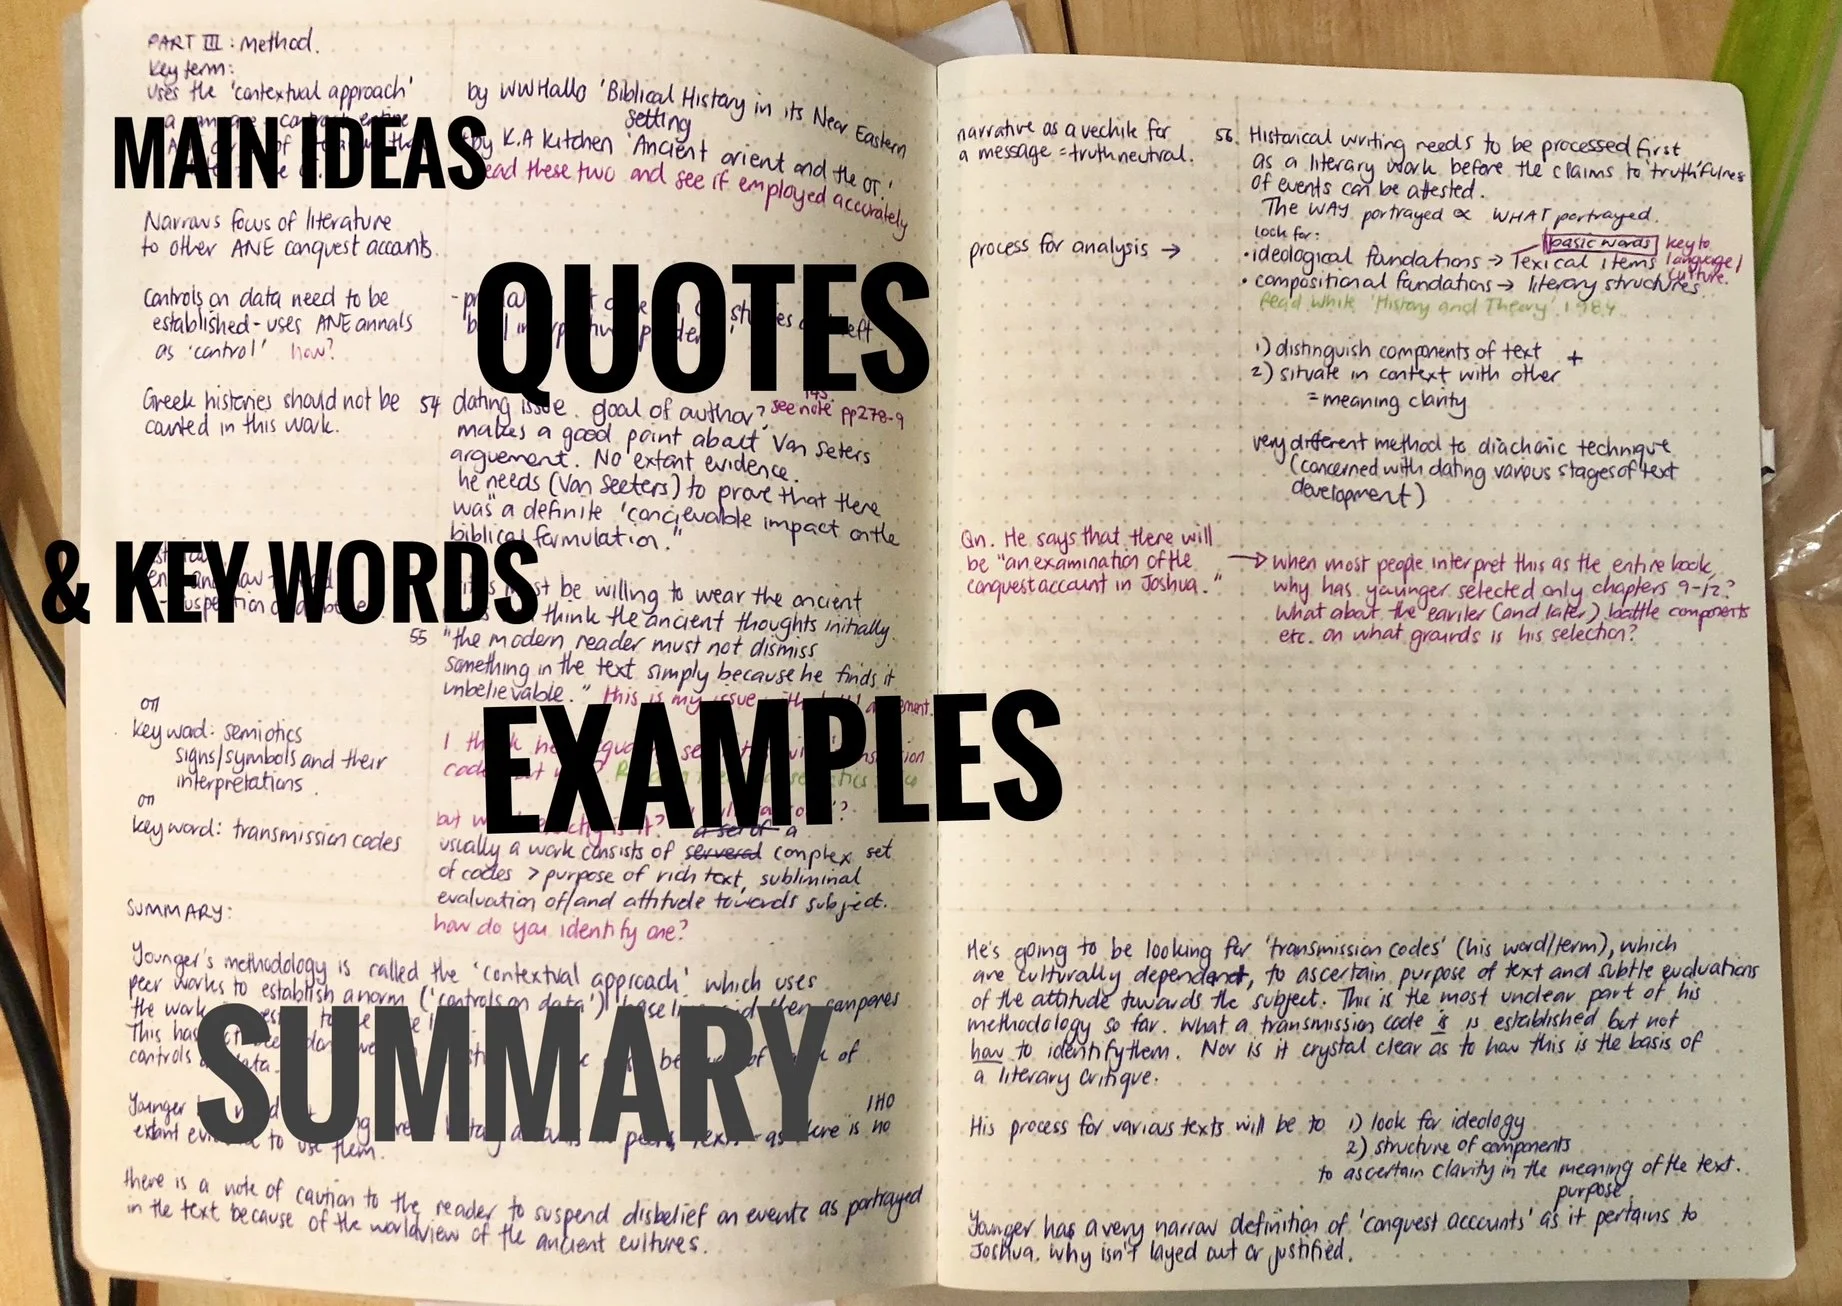 PART III : Method.
Key term:
uses the 'contextual approach'
MAIN IDEAS
Narrows focus of literature
to other ANE conquest accounts.
Controls on data need to be
established - uses ANE annals
as 'control' how?
Greek histories should not be
counted in this work.
& KEY WORDS
on
key word: semiotics
signs/symbols and their
interpretations.
on
key word: transmission codes
by WWHallo 'Biblical History in its Near Eastern
setting
by K.A Kitchen 'Ancient orient and the OT.'
read these two and see if employed accurately
QUOTES
54 dating issue. goal of author? see note 193. pp278-9
makes a good point about Van Seters
arguement. No extant evidence.
he needs (Van Seeters) to prove that there
was "a definite 'concievable impact on the
biblical formulation."
must be willing to wear the ancient
think the ancient thoughts initially.
55 "the modern reader must not dismiss
something in the text simply because he finds it
unbelievable." this is my issue
EXAMPLES
I think
but
a set of a
usually a work consists of serveral complex set
of codes > purpose of rich text, subliminal
evaluation of/and attitude towards subject.
how do you identify one?
SUMMARY:
Younger's methodology is called the 'contextual approach' which uses
peer works to establish a norm ('controls on data') then compares
the work
This has
controls data.
SUMMARY
Younger
IHO
extant to use them. peers texts - as there is no
there is a note of caution to the reader to suspend disbelief on events as portrayed
in the text because of the worldview of the ancient cultures.
narrative as a vechile for
a message = truth neutral.
56. Historical writing needs to be processed first
as a literary work before the claims to 'truth'fulness
of events can be attested.
The WAY portrayed ∝ WHAT portrayed.
process for analysis →
look for:
basic words key to
• ideological foundations → lexical items language/
culture.
• compositional foundations → literary structures.
Read White 'History and Theory' 1984
1) distinguish components of text +
2) situate in context with other
= meaning clarity
very different method to diachonic technique
(concerned with dating varous stages of text
development)
Qn. He says that there will
be "an examination of the
conquest account in Joshua."
→ when most people interpret this as the entire book,
why has younger selected only chapters 9-12?
What about the earlier (and later) battle components
etc. on what grounds is his selection?
He's going to be looking for 'transmission codes' (his word/term), which
are culturally dependent, to ascertain purpose of text and subtle evaluations
of the attitude towards the subject. This is the most unclear part of his
methodology so far. What a transmission code is is established but not
how to identify them. Nor is it crystal clear as to how this is the basis of
a literary critique.
His process for various texts will be to 1) look for ideology
2) structure of components
to ascertain clarity in the meaning of the text.
purpose
Younger has a very narrow definition of 'conquest accounts' as it pertains to
Joshua. why isn't layed out or justified.